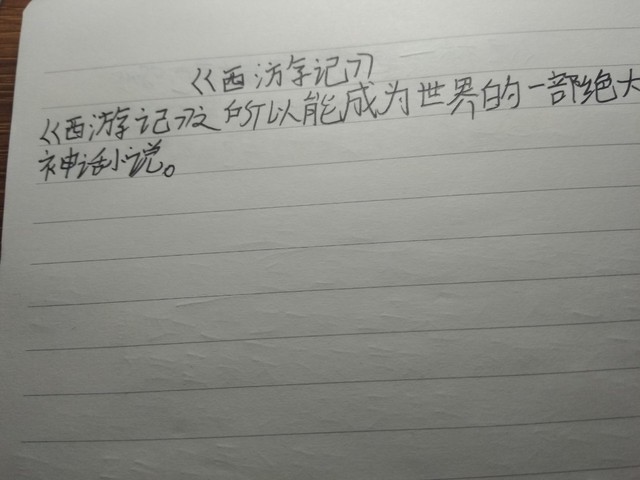 《西游记》
《西游记》之所以能成为世界的一部绝大
神话小说。